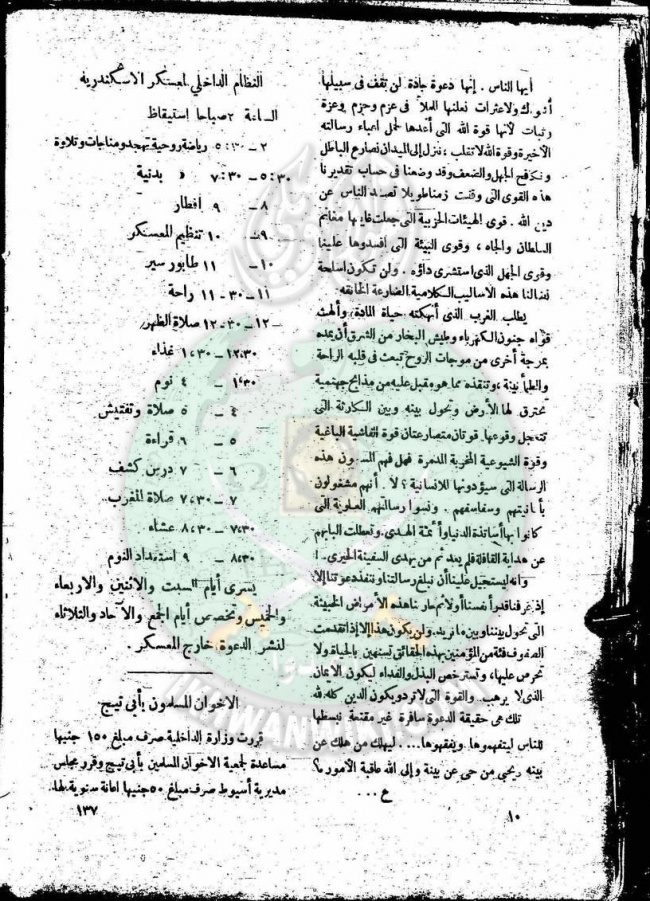 أيها الناس . إنها دعوة جادة لن تقف فى سبيلها
أشواك ولا عثرات نعلنها للملأ فى عزم وحزم وعزة
وثبات لأنها قوة الله التى أعدها لحمل أعباء رسالته
الأخيرة وقوة الله لا تغلب ، ننزل إلى الميدان نصارع الباطل
ونكافح الجهل والضعف وقد وضعنا فى حساب تقديرنا
هذه القوى التى وقفت زمنا طويلا تصد الناس عن
دين الله . قوى الهيئات الحزبية التى جعلت غايتها مغانم
السلطان والجاه ، وقوى البيئة التى أفسدوها علينا
وقوى الجهل الذى استشرى داؤه . ولن تكون أسلحة
نضالنا هذه الأساليب الكلامية الضارعة الخانقه
يطلب الغرب الذى أنهكته حياة المادة وألهث
قواه جنون الكهرباء وطيش البخار من الشرق أن يمده
بموجة أخرى من موجات الروح تبعث فى قلبه الراحة
والطمأنينة ، وتنقذه مما هو مقبل عليه من مذابح جهنمية
تحترق لها الأرض وتحول بينه وبين الكارثة التى
تتعجل وقوعها قوتان متصارعتان قوة الفاشية الباغية
وقوة الشيوعية المخربة المدمرة فهل فهم المسلمون هذه
الرسالة التى سيؤدونها للانسانية ؟ لا . أنهم مشغولون
بأنانيتهم وسفاسفهم . ونسوا رسالتهم العلوية التى
كانوا بها أساتذة الدنيا وأئمة الهدى وتعطلت
عن هداية القافلة فلم يعد ثم من يهدى السفينة الحيرى .
وانه ليستحيل علينا أن نبلغ رسالتنا وننفذ دعوتنا إلا
إذا غرفنا قدر أنفسنا أولا ثم حاربنا هذه الأمراض الخبيثة
التى تحول بيننا وبين ما نريد . ولن يكون هذا إلا إذا تقدمت
الصفوف فئة من المؤمنين بهذه الحقائق تستهين بالحياة ولا
تحرص عليها ، وتسترخص البذل والفداء ليكون الايمان
الذى لا يرهب . والقوة التى لا ترد ويكون الدين كله لله
تلك هى حقيقة الدعوة سافرة غير مقنعة نبسطها
للناس ليتفهموها ويفقهوها .... ليهلك من هلك عن
بينه ويحيى من حى عن بينة وإلى الله عاقبة الأمور ؟
ع ...
١٠
النظام الداخلي لمعسكر الاسكندرية
الساعة ٢ صباحا استيقاظ
٢ – ٥،٣٠ رياضة روحية تهجد ومناجات وتلاوة
٥،٣٠ – ٧،٣٠ « بدنية
٨ – ٩ افطار
٩ – ١٠ تنظيم المعسكر
١٠ – ١١ طابور سير
١١ – ١١،٣٠ راحة
١٢ – ١٢،٣٠ صلاة الظهر
١٢،٣٠ – ١،٣٠ غذاء
١،٣٠ – ٤ نوم
٤ – ٥ صلاة وتفتيش
٥ – ٦ قراءة
٦ – ٧ درس كشف
٧ – ٧،٣٠ صلاة المغرب
٧،٣٠ – ٨،٣٠ عشاء
٨،٣٠ – ٩ استعداد النوم
يسرى أيام السبت والاثنين والاربعاء
والخميس وتخصص أيام الجمع والآحاد والثلاثاء
لنشر الدعوة خارج المعسكر .
الاخوان المسلمون بأبى تيج
قررت وزارة الداخلية صرف مبلغ ١٥٠ جنيها
مساعدة لجمعية الاخوان المسلمين بأبى تيج وقرر مجلس
مديرية أسيوط صرف مبلغ ٥٠ جنيها اعانة سنوية لها.
١٣٧